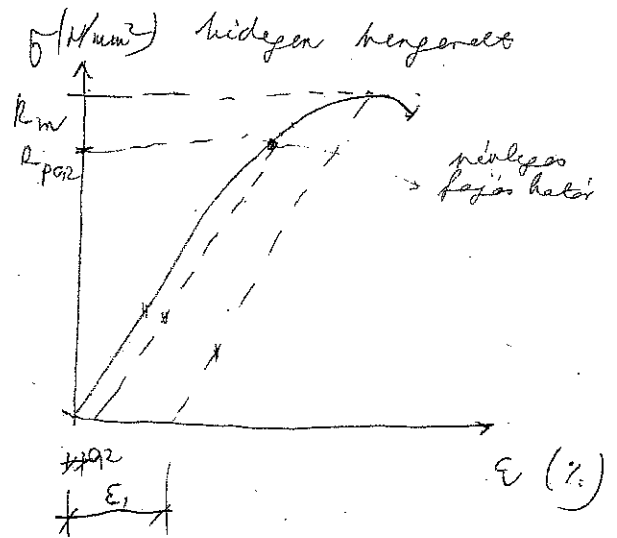 σ (N/mm²) hidegen hengerelt
Rm
Rp0,2
névleges
folyás határ
0,2
ε1
ε (%)